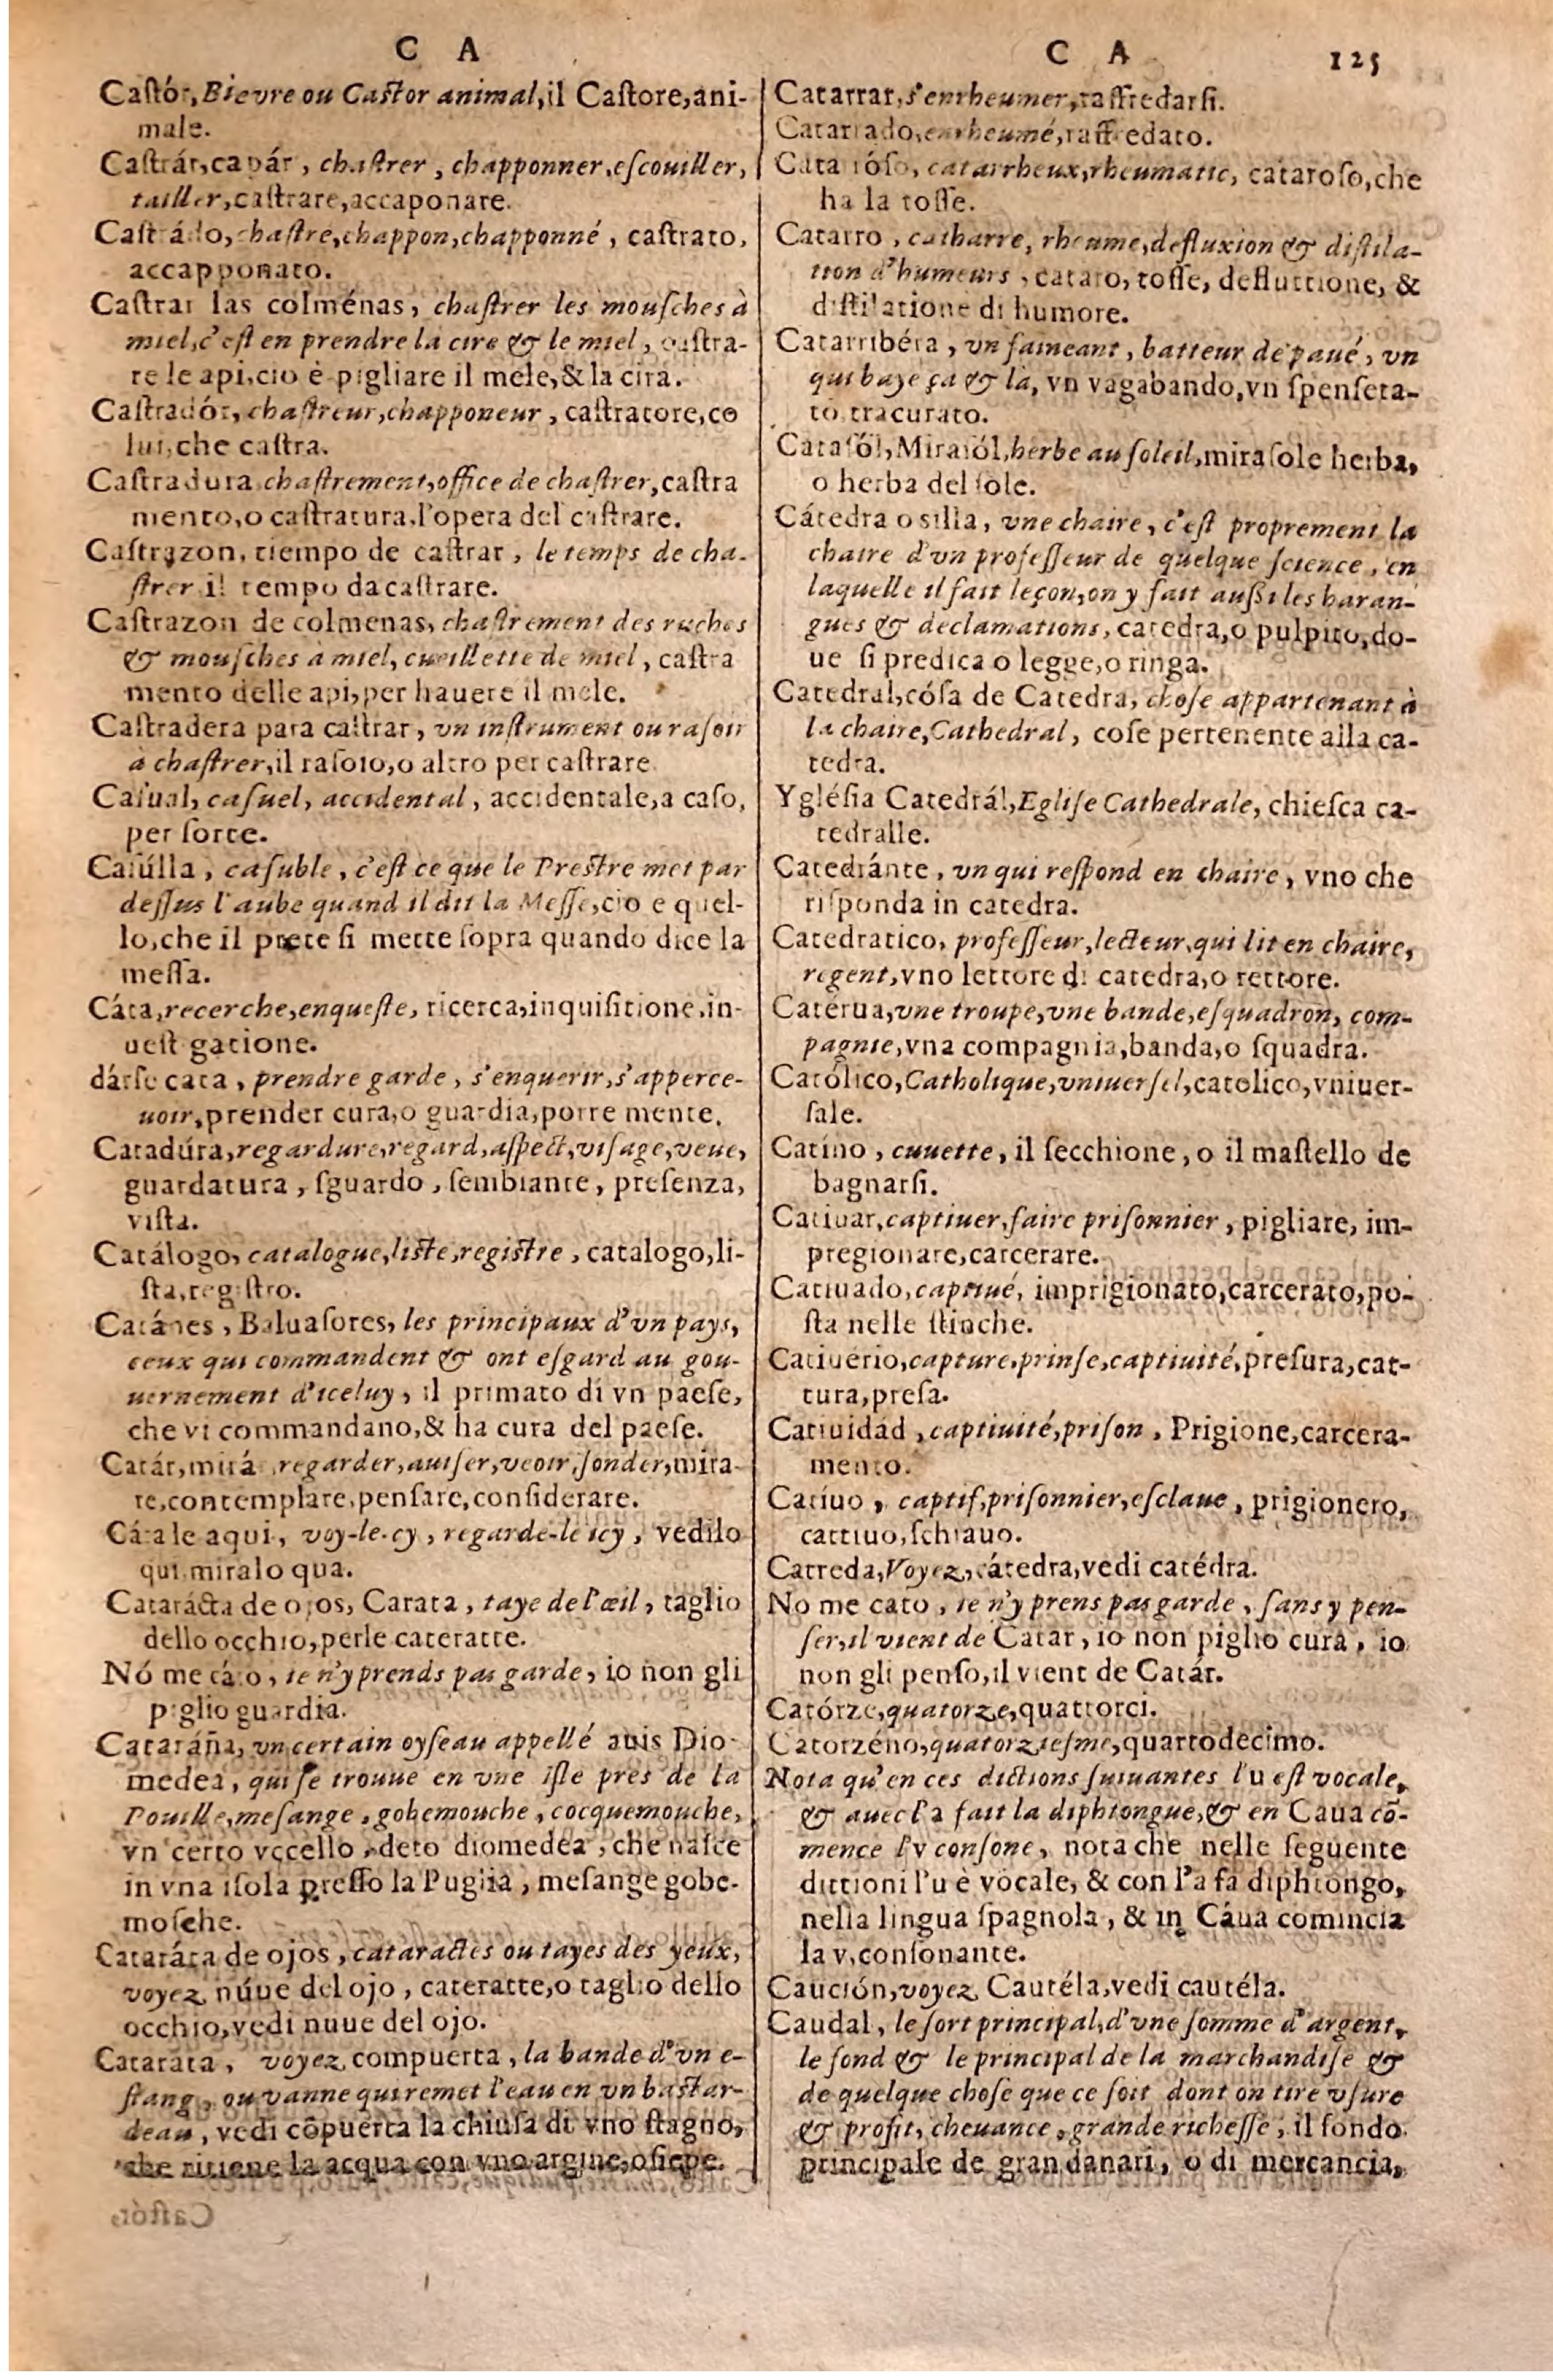 C A
Castór, Bievre ou Castor animal, il Castore, ani-
male.
Castrár, capár, chastrer, chapponner, escouiller,
tailler, castrare, accaponare.
Castrádo, chastre, chappon, chapponné, castrato,
accapponato.
Castrar las colménas, chastrer les mousches à
miel, c'est en prendre la cire & le miel, castra-
re le api, cio è pigliare il mele, & la cira.
Castradór, chastreur, chapponeur, castratore, co
lui, che castra.
Castradura chastrement, office de chastrer, castra
mento, o castratura, l'opera del castrare.
Castrazon, tiempo de castrar, le temps de cha-
strer il tempo da castrare.
Castrazon de colmenas, chastrement des ruches
& mousches a miel, cueillette de miel, castra
mento delle api, per hauere il mele.
Castradera para castrar, vn instrument ou rasoir
à chastrer, il rasoio, o altro per castrare.
Casual, casuel, accidental, accidentale, a caso,
per sorte.
Casúlla, casuble, c'est ce que le Prestre met par
dessus l'aube quand il dit la Messe, cio e quel-
lo, che il prete si mette sopra quando dice la
messa.
Cáta, recerche, enqueste, ricerca, inquisitione, in-
uest gatione.
dárse cata, prendre garde, s'enquerir, s'apperce-
uoir, prender cura, o guardia, porre mente.
Catadúra, regardure, regard, aspect, visage, veue,
guardatura, sguardo, sembiante, presenza,
vista.
Catálogo, catalogue, liste, registre, catalogo, li-
sta, registro.
Catánes, Baluasores, les principaux d'vn pays,
ceux qui commandent & ont esgard au gou-
uernement d'iceluy, il primato di vn paese,
che vi commandano, & ha cura del paese.
Catár, mirá regarder, auiser, veoir, sonder, mira-
re, contemplare, pensare, considerare.
Cátale aqui, voy-le-cy, regarde-le icy, vedilo
qui, miralo qua.
Catarácta de ojos, Carata, taye de l'œil, taglio
dello occhio, perle cateratte.
Nó me cáto, ie n'y prends pas garde, io non gli
piglio guardia.
Cataráña, vn certain oyseau appellé auis Dio-
medea, qui se trouue en vne isle pres de la
Pouille, mesange, gobemouche, cocquemouche,
vn certo vccello, deto diomedea, che nasce
in vna isola presso la Puglia, mesange gobe-
mosche.
Cataráta de ojos, cataractes ou tayes des yeux,
voyez núue del ojo, cateratte, o taglio dello
occhio, vedi nuue del ojo.
Catarata, voyez compuerta, la bande d'vn e-
stang, ou vanne qui remet l'eau en vn bastar-
deau, vedi cõpuerta la chiusa di vno stagno,
che ritiene la acqua con vno argine, o siepe.
C A 125
Catarrar, s'enrheumer, raffredarsi.
Catarrado, enrheumé, raffredato.
Cataróso, catarrheux, rheumatic, cataroso, che
ha la tosse.
Catarro, catharre, rheume, defluxion & distila-
tion d'humeurs, cataro, tosse, defluttione, &
distilatione di humore.
Catarribéra, vn faineant, batteur de paué, vn
qui baye ça & là, vn vagabando, vn spenseta-
to tracurato.
Catasól, Mirasól, herbe au soleil, mirasole herba,
o herba del sole.
Cátedra o silla, vne chaire, c'est proprement la
chaire d'vn professeur de quelque science, en
laquelle il fait leçon, on y fait aussi les haran-
gues & declamations, catedra, o pulpito, do-
ue si predica o legge, o ringa.
Catedral, cósa de Catedra, chose appartenant à
la chaire, Cathedral, cose pertenente alla ca-
tedra.
Yglésia Catedrál, Eglise Cathedrale, chiesca ca-
tedralle.
Catedránte, vn qui respond en chaire, vno che
risponda in catedra.
Catedratico, professeur, lecteur, qui lit en chaire,
regent, vno lettore di catedra, o rettore.
Catérua, vne troupe, vne bande, esquadron, com-
pagnie, vna compagnia, banda, o squadra.
Católico, Catholique, vniuersel, catolico, vniuer-
sale.
Catíno, cuuette, il secchione, o il mastello de
bagnarsi.
Catiuar, captiuer, faire prisonnier, pigliare, im-
pregionare, carcerare.
Catiuado, captiué, imprigionato, carcerato, po-
sta nelle stinche.
Catiuério, capture, prinse, captiuité, presura, cat-
tura, presa.
Catiuidád, captiuité, prison, Prigione, carcera-
mento.
Catíuo, captif, prisonnier, esclaue, prigionero,
cattiuo, schiauo.
Catreda, Voyez, cátedra, vedi catédra.
No me cato, ie n'y prens pas garde, sans y pen-
ser, il vient de Catar, io non piglio cura, io
non gli penso, il vient de Catár.
Catórze, quatorze, quattorci.
Catorzéno, quatorziesme, quartodecimo.
Nota qu'en ces dictions suiuantes l'u est vocale,
& auec l'a fait la diphtongue, & en Caua cõ-
mence l'v consone, nota che nelle seguente
dittioni l'u è vocale, & con l'a fa diphtongo,
nella lingua spagnola, & in Cáua comincia
la v, consonante.
Caución, voyez Cautéla, vedi cautéla.
Caudal, le sort principal, d'vne somme d'argent,
le fond & le principal de la marchandise &
de quelque chose que ce soit dont on tire vsure
& profit, cheuance, grande richesse, il fondo
principale de gran danari, o di mercancia,